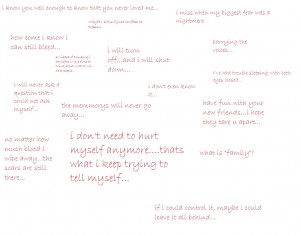 i know you well enough to know that you never loved me...
i miss when my biggest fear was a
nightmare
how come i know i
can still bleed...
i will turn
off...and i will shut
down...
barrying the
voices...
I've had trouble sleeping with both
eyes closed...
i will never ask a
question that i
could not ask
myself...
i don't even know
the memmorys will never go
away...
have fun with your
new friends...i hope
they tare u apart...
no matter how
much blood i
wipe away...the
scars are still
there...
i don't need to hurt
myself anymore....thats
what i keep trying to
tell myself...
what is 'family'?
if i could control it, maybe i could
leave it all behind...